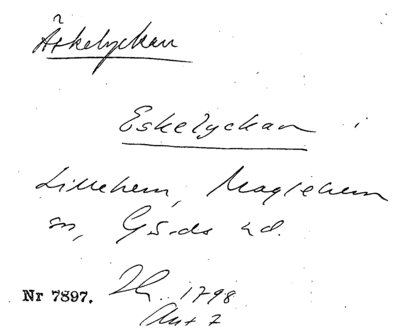 Äskelyckan
Eskelyckan i
Lillehem, Maglehem
sn, Gärds hd.
Nr 7897. 1798
Akt 7